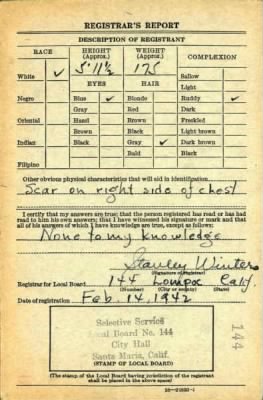 REGISTRAR'S REPORT
DESCRIPTION OF REGISTRANT
RACE HEIGHT (Approx.) WEIGHT (Approx.) COMPLEXION
White ✓ 5' 11½ 175 Sallow
EYES HAIR Light
Negro Blue ✓ Blonde Ruddy ✓
Gray Red Dark
Oriental Hazel Brown Freckled
Brown Black Light brown
Indian Black Gray ✓ Dark brown
Bald Black
Filipino
Other obvious physical characteristics that will aid in identification
Scar on right side of chest
I certify that my answers are true; that the person registered has read or has had
read to him his own answers; that I have witnessed his signature or mark and that
all of his answers of which I have knowledge are true, except as follows:
None to my knowledge
Stanley Winter
(Signature of Registrar)
Registrar for Local Board 144 Lompoc Calif.
(Number) (City or county) (State)
Date of registration Feb. 14, 1942
Selective Service
Local Board No. 144
City Hall
Santa Maria, Calif.
(STAMP OF LOCAL BOARD)
144
(The stamp of the Local Board having jurisdiction of the registrant
shall be placed in the above space)